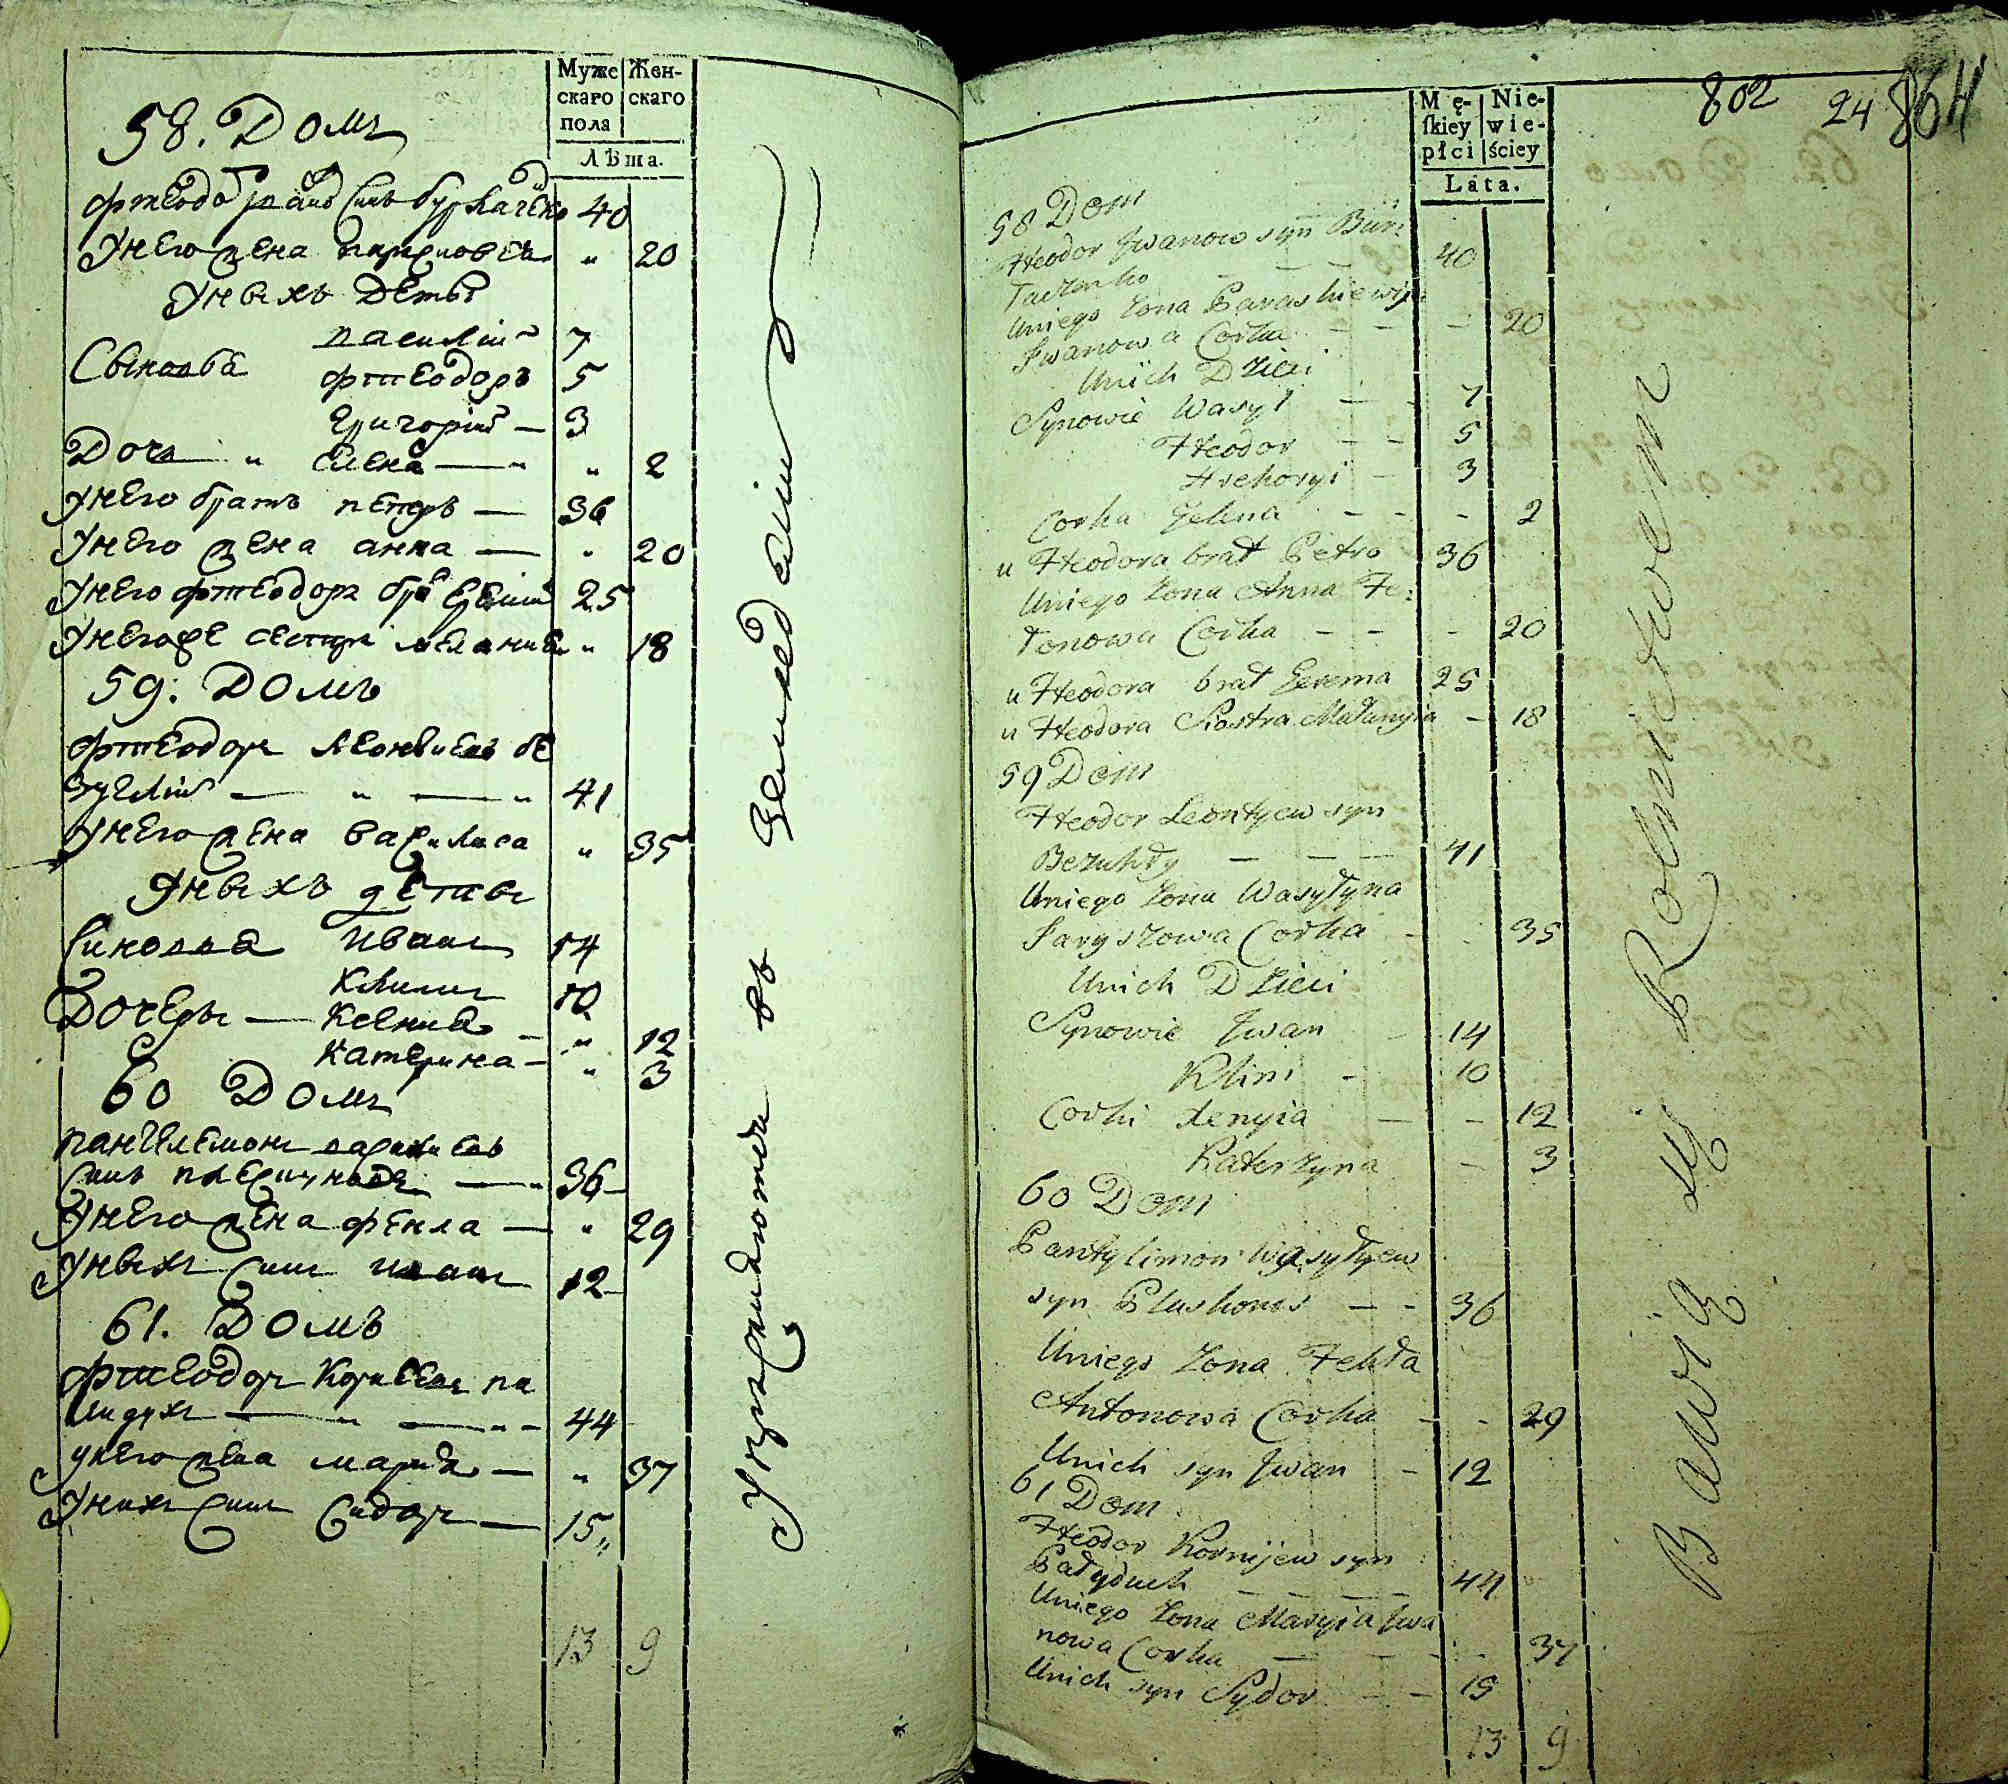 Муже
скаго
пола
Жен-
скаго
Лѣта.
58. Домъ
Фтеодо Іванов Синъ Бурлаченко 40
У него жена парасковея " 20
У ныхъ дѣты
Сыновья василий 7
фтеодоръ 5
григорий — 3
Дочь " елена — " " 2
У него братъ петръ — 36
У него жена анна — " 20
У него фтеодора бра еремій 25
У него же сестра мелания " 18
59. Домъ
Фтеодоръ Леонтиевъ бе
зуглий — " — " 41
У него жена василиса " 35
У ныхъ дѣты
Синовья иванъ 14
Климъ 10
Дочеры — Ксения — " 12
Катерина — " 3
60 Домъ
Пантилемонъ васильевъ
Синъ — " 36
У него жена фекла — " 29
У ныхъ Синъ иванъ 12
61. Домъ
Фтеодоръ Корнеевъ па
лидухъ — " — " 44
У него жена мария — " 37
У нихъ Синъ Сидоръ — 15 "
13 9
Упражняются въ земледелии
802 24 864
Mę-
ſkiey
płci
Nie-
wie-
ściey
Lata.
58 Dom
Hteodor Jwanow syn Bur:
łaczenko - - - 40
Uniego Zona Paraskiewija
Jwanowa Corka - - - 20
Unich Dzieci
Synowie Wasyl - - 7
Hteodor - - 5
Hrehoryi - 3
Corka Jelena - - - 2
u Hteodora brat Petro 36
Uniego Zona Anna Fe:
tonowa Corka - - - 20
u Hteodora brat Jerema 25
u Hteodora Siostra Małanyia - 18
59 Dom
Hteodor Leontyew syn
Bezuhły — — — 41
Uniego Zona Wasyłyna
Jaryszowa Corka - - 35
Unich Dzieci
Synowie Jwan - 14
Klim - 10
Corki Xenyia — - 12
Katerzyna - 3
60 Dom
Pantylimon Wasyłyew
syn Pluskonos — - 36
Uniego Zona Fekła
Antonowa Corka - - 29
Unich syn Jwan - 12
61 Dom
Hteodor Kornijew syn
Pałyduch — — — — 44
Uniego Zona Maryia Jwa
nowa Corka — - - - 37
Unich syn Sydor - - 15
13 9
Bawią się Rolnictwem